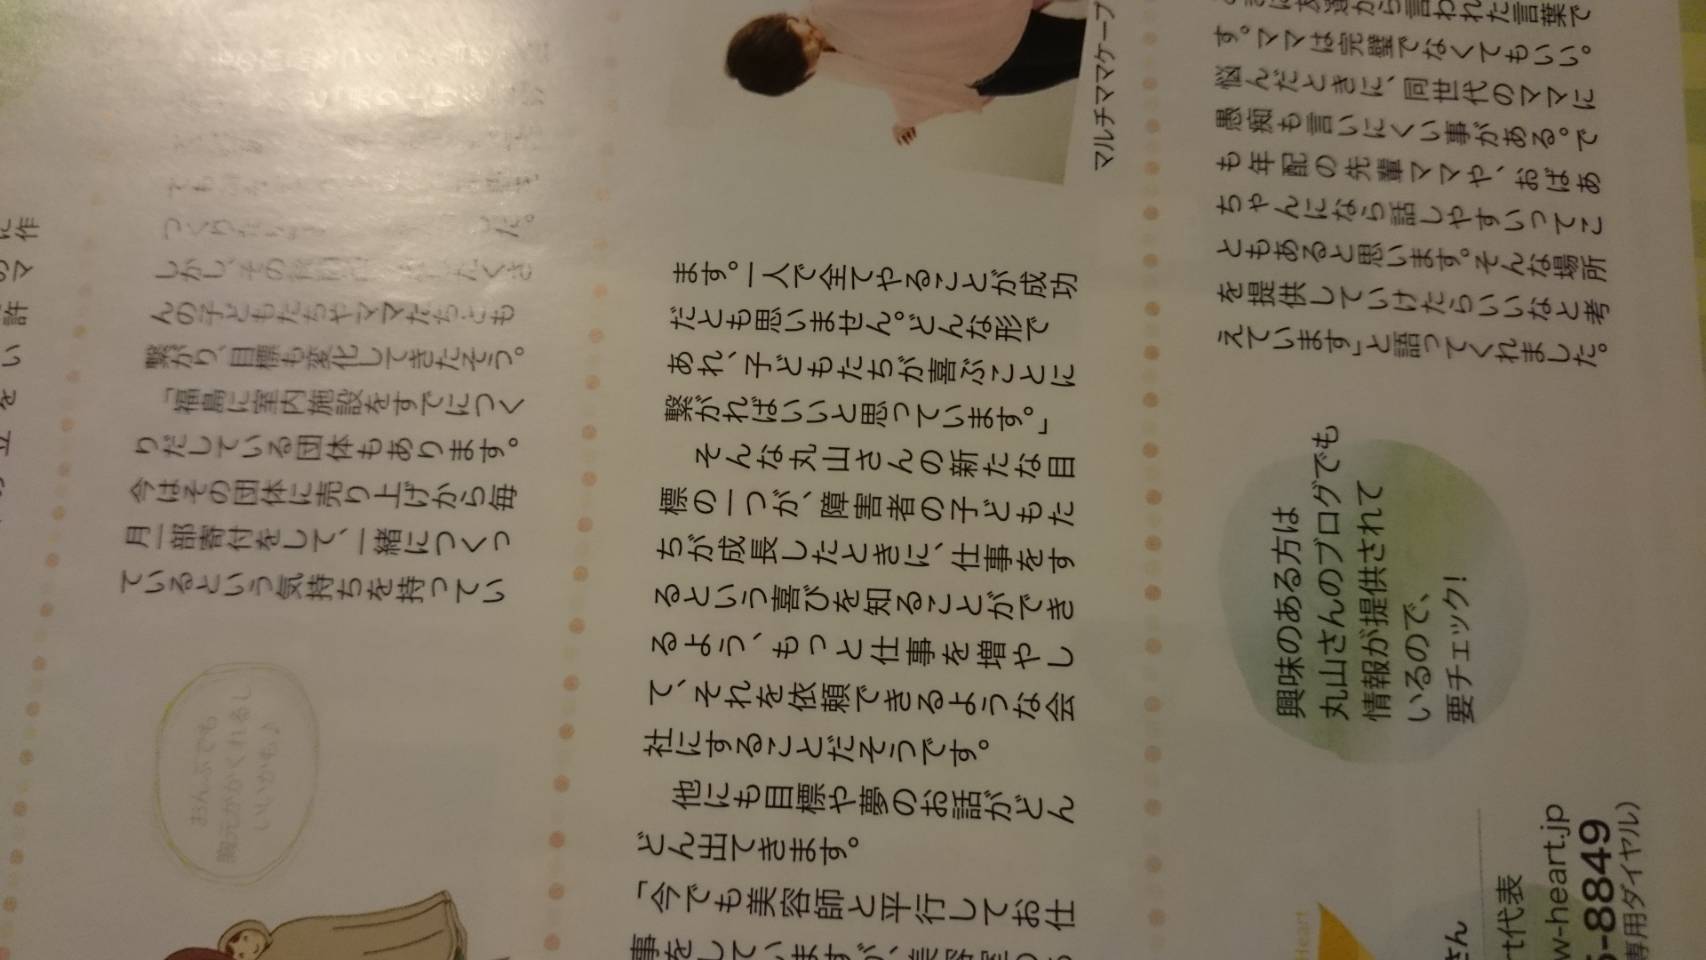 しかし、その
んの子どもたちやママたちとも
繋がり、目標も変化してきたそう。
「福島に室内施設をすでにつく
りだしている団体もあります。
今はその団体に売り上げから毎
月一部寄付をして、一緒につくっ
ているという気持ちを持ってい
ます。一人で全てやることが成功
だとも思いません。どんな形で
あれ、子どもたちが喜ぶことに
繋がればいいと思っています。」
そんな丸山さんの新たな目
標の一つが、障害者の子どもた
ちが成長したときに、仕事をす
るという喜びを知ることができ
るよう、もっと仕事を増やし
て、それを依頼できるような会
社にすることだそうです。
他にも目標や夢のお話がどん
どん出てきます。
「今でも美容師と平行してお仕
事をしていますが、美容室の
から言われた言葉で
す。ママは完璧でなくてもいい。
悩んだときに、同世代のママに
愚痴も言いにくい事がある。で
も年配の先輩ママや、おばあ
ちゃんになら話しやすいってこ
ともあると思います。そんな場所
を提供していけたらいいなと考
えています」と語ってくれました。
マルチママケープ
おんぶでも
胸元がかくれるし
いいかも♪
興味のある方は
丸山さんのブログでも
情報が提供されて
いるので、
要チェック!
Heart
さん
rt代表
w-heart.jp
-8849
専用ダイヤル）